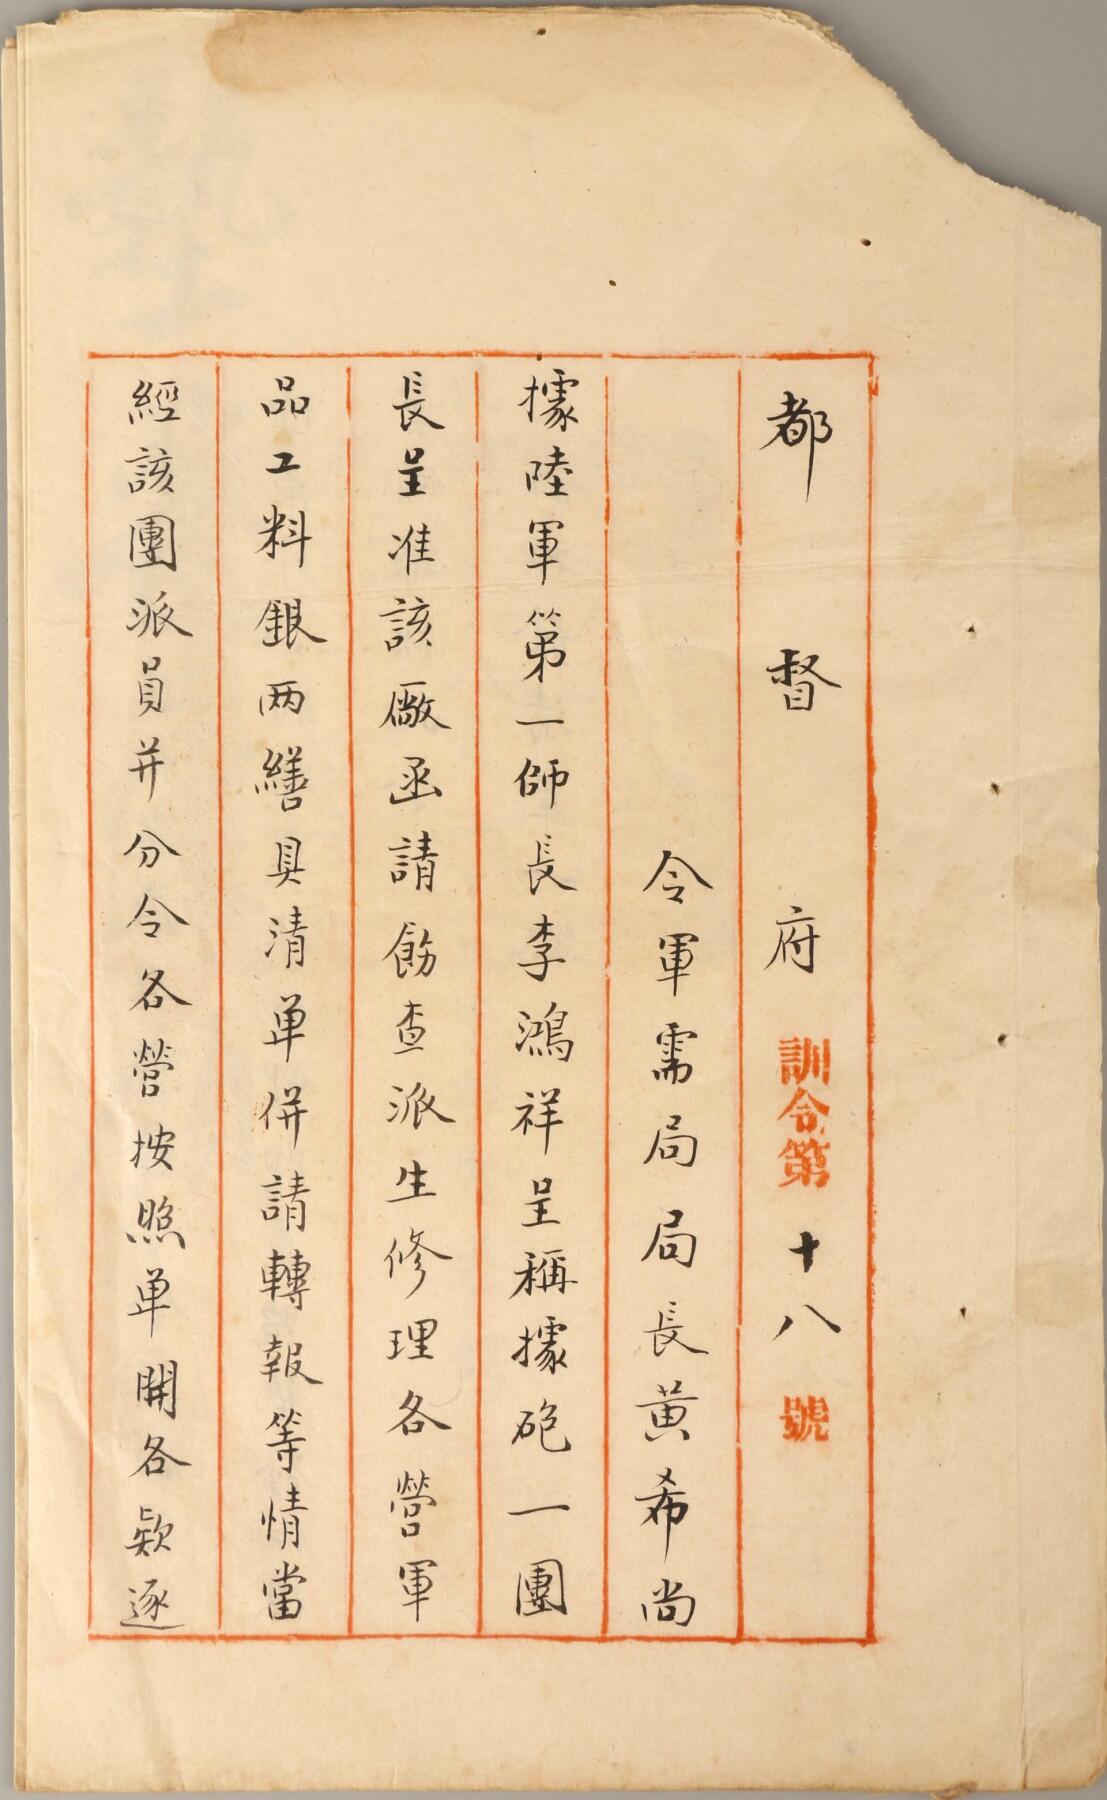 都督府訓令第十八號
令軍需局局長黄希尚
據陸軍第一師長李鴻祥呈稱據砲一團
長呈准該廠函請飭查派生修理各營軍
品工料銀两繕具清单併請轉報等情當
經該團派員并分令各營按照单開各欵逐